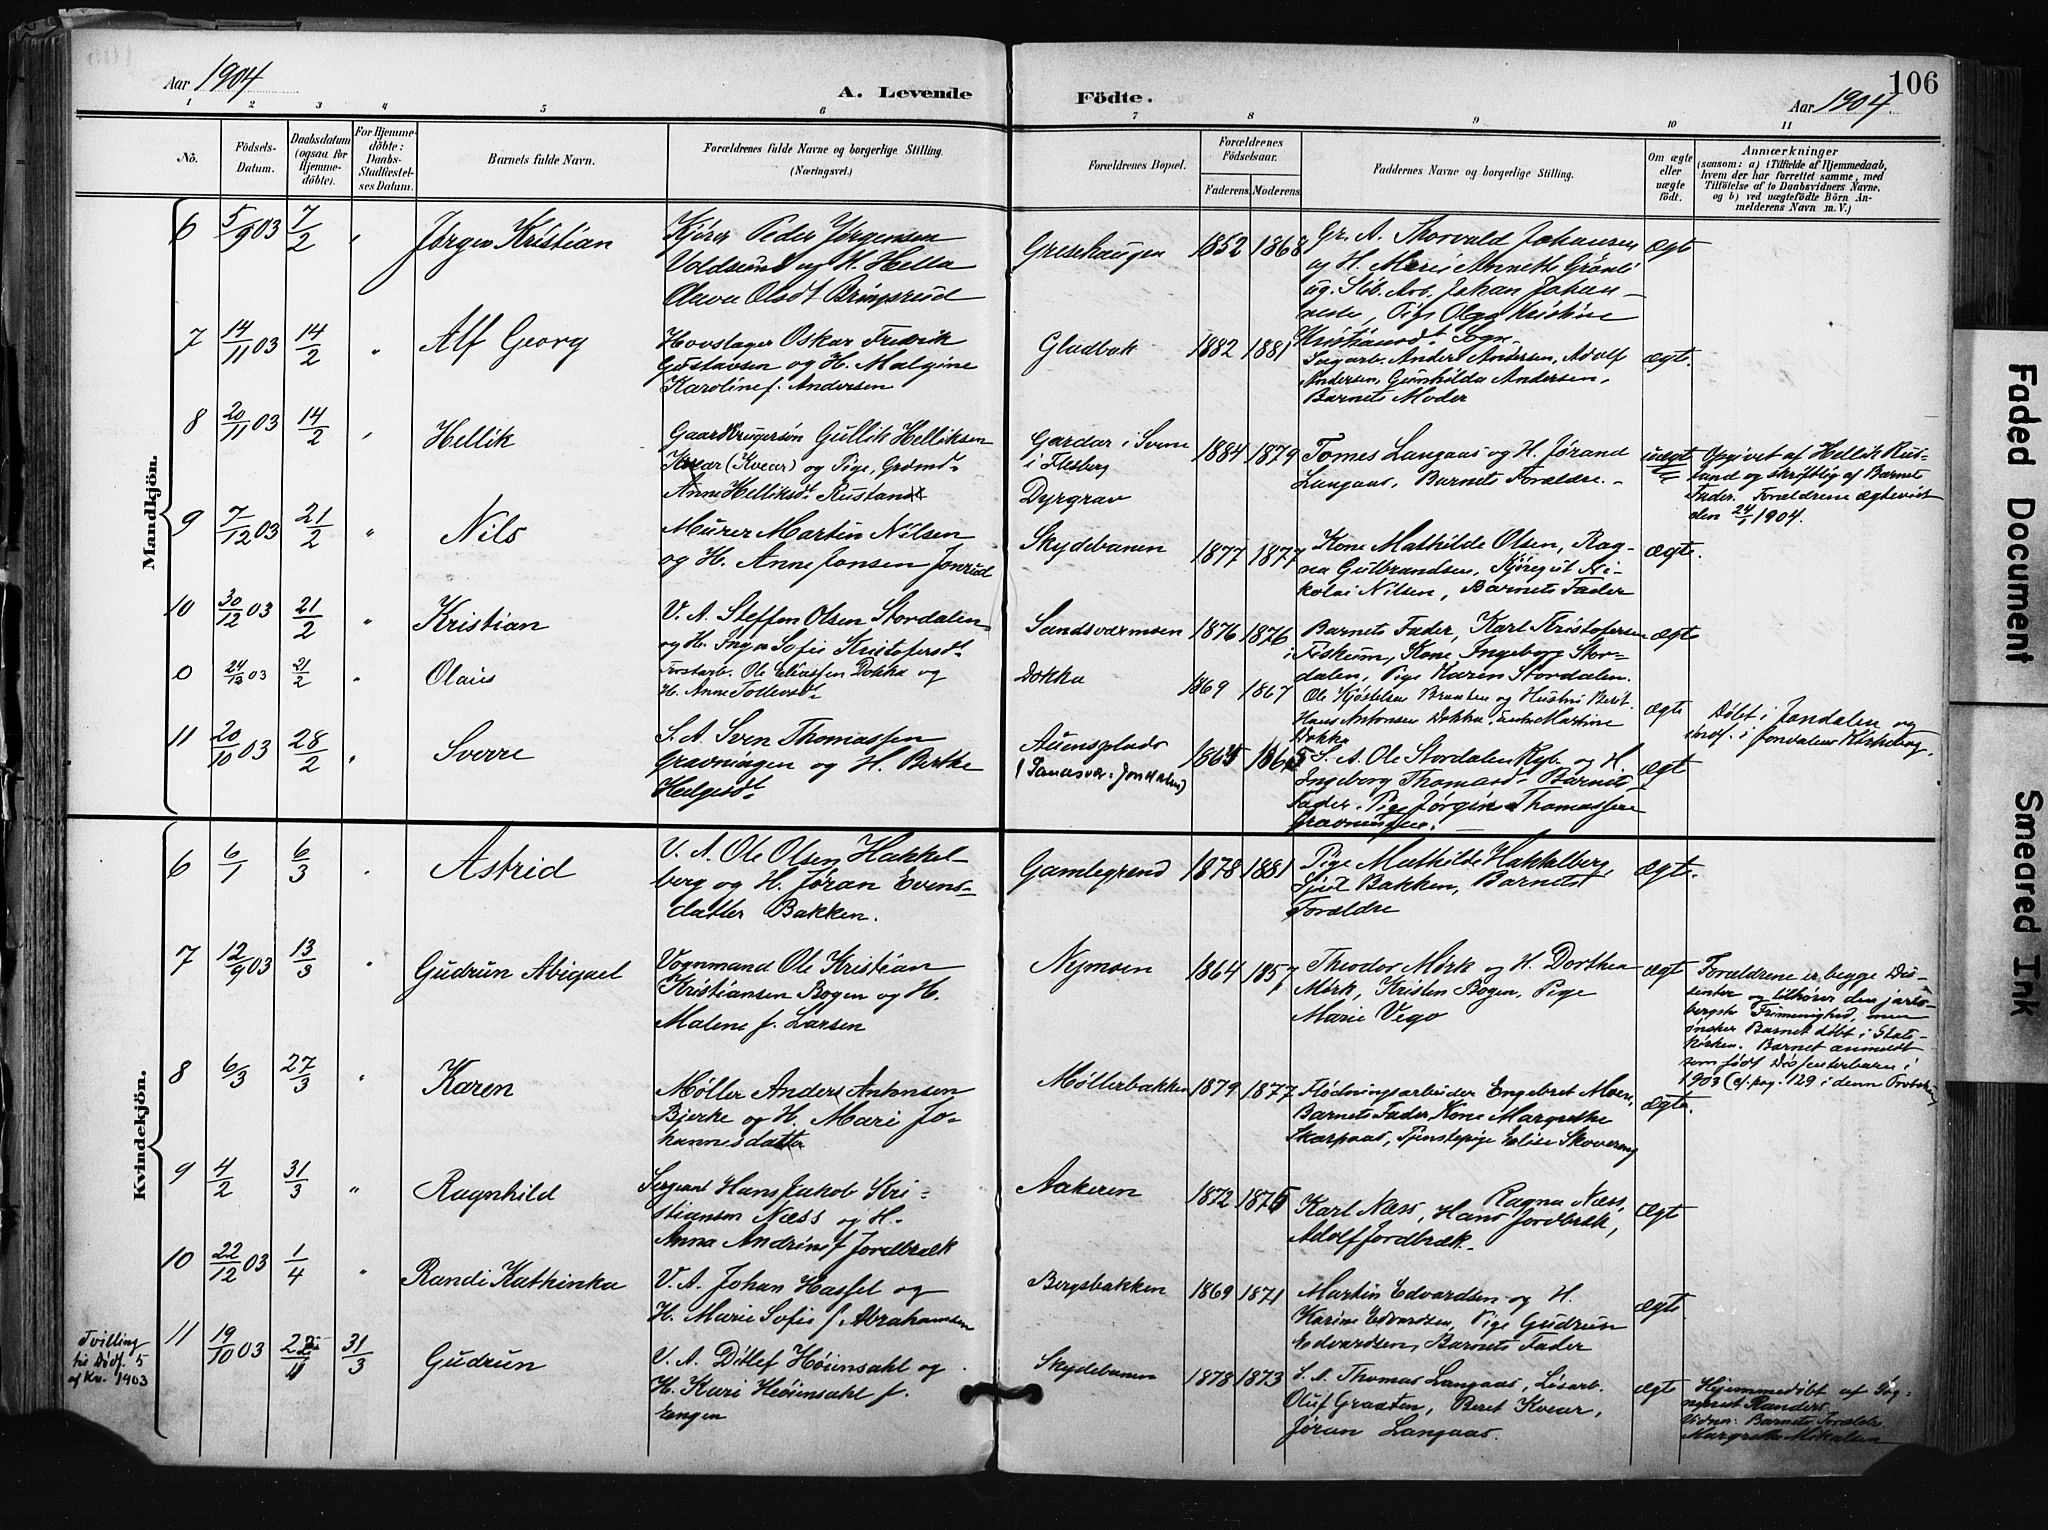 Aar 1904
A. Levende
Födte.
Aar 1904
106
1 2 3 4 5 6 7 8 9 10 11
No.
Födsels-
Datum.
Daabsdatum
(ogsaa for
Hjemme-
döbte).
For Hjemme-
döbte:
Daabs-
Stadfæstel-
ses Datum.
Barnets fulde Navn.
Forældrenes fulde Navne og borgerlige Stilling.
(Næringsvei.)
Forældrenes Bopæl.
Forældrenes
Födselsaar.
Faderens Moderens
Faddernes Navne og borgerlige Stilling.
Om ægte
eller
uægte
födt.
Anmærkninger
(saasom: a) i Tilfælde af Hjemmedaab,
hvem der har forrettet samme, med
Tilföielse af to Daabsvidners Navne.
og b) ved uægtefödte Börn An-
melderens Navn m. V.)
Mandkjön.
6 5/9 03 7/2 " Jørgen Kristian
Kjører Peder Jørgensen
Voldsund og H. Hella
Olava Olsdt Bringsrud
Gresehaugen 1852 1868
Gr. A. Thorvald Johansen
og H. Marie Annethe
og Johan Johan-
Pige Olga Kristine
ægte
7 14/11 03 14/2 " Alf Georg
Hovslager Oskar Fredrik
Gustavsen og H. Malgine
Karoline f. Andersen
Gladbak 1882 1881
Anders Andersen, Adolf
Andersen, Gunhilda Andersen,
Barnets Moder
ægte.
8 20/11 03 14/2 " Hellik
Gaardbrugersøn Gullik Helliksen
Kvear (Kvear) og Pige, Grd.
Anne Helliksdt Rustand
Gardar i Svene
i Flesberg
Dyrgrav
1884 1879
Tomes Langaas og H. Jørand
Langaas, Barnets Forældre.
uægt
Opgivet af Hellik Rus-
tand og skriftlig af Barnets
Fader. Forældrene ægteviet
den 24/1 1904.
9 7/12 03 21/2 " Nils
Murer Martin Nilsen
og H. Anne Jonsen Jonrud
Skydebanen 1877 1877
Kone Mathilde Olsen, Rag-
na Gulbrandsen, Kjøregut Ni-
kolai Nilsen, Barnets Fader
ægte.
10 30/12 03 21/2 " Kristian
V. A. Steffen Olsen Stordalen
og H. Inga Sofie Kristofersdt.
Sandsværmoen 1876 1876
Barnets Fader, Karl Kristofersen
i Fiskum, Kone Ingeborg Stor-
dalen, Pige Karen Stordalen.
ægte
0 24/12 03 21/2 Olaus
Forstarb. Ole Eliassen Dokka og
H. Anne Tollevsdt
Dokka 1869 1867
Ole Kjøstelsen Braaten og Hustru Berit.
Hans Antonsen Dokka, Martine
Dokka
ægte
Døbt i Jondalen og
indf. i Jondalens Kirkebog.
11 20/10 03 28/2 " Sverre
S. A. Sven Thomassen
Gravningen og H. Berthe
Helgesdt
Auensplads
(Sandsvær: Jondalen)
1865 1865
S. A. Ole Stordalen Kgb. og H.
Ingeborg Thomasdt Barnets
Fader. Pige Jørgine Thomassen
Gravningen.
ægte
Kvindekjön.
6 6/1 6/3 " Astrid
V. A. Ole Olsen Hakkel-
berg og H. Jøran Evens-
datter Bakken.
Gamlegrend 1878 1881
Pige Mathilde Hakkelberg,
Bakken, Barnets
Forældre
ægte.
7 12/9 03 13/3 " Gudrun Abigael
Vognmand Ole Kristian
Kristiansen Bogen og H.
Malene f. Larsen
Nymoen 1864 1857
Theodor Mørk og H. Dorthea
Mørk, Kristen Bogen, Pige
Marie Vego
ægte
Forældrene er begge Dis-
senter og tilhører den jarls-
bergske Frimenighed, men
ønsker Barnet døbt i Stats-
kirken. Barnet anmeldt
som født Dissenterbarn i
1903 (cf. pag. 129 i denne Protokol)
8 6/3 27/3 " Karen
Møller Anders Antonsen
Bjerke og H. Mari Jo-
hannesdatter
Møllerbakken 1879 1877
Flødningsarbeider Engebret Moen,
Barnets Fader, Kone Margrethe
Skarpaas, Tjenstepige Elise Skovereng
ægte.
9 4/2 31/3 " Ragnhild
Sergeant Hans Jakob Kri-
stiansen Næss og H.
Anna Andrine f. Jordbræk
Aakeren 1872 1876
Ragna Næss,
Karl Næss, Hans Jordbræk,
Adolf Jordbræk.
ægte
10 22/12 03 1/4 " Randi Kathinka
V. A. Johan Hassel og
H. Marie Sofie f. Abrahamsen
Bergsbakken 1869 1871
Martin Edvardsen og H.
Karine Edvardsen, Pige Gudrun
Edvardsen, Barnets Fader
ægte
Tvilling
til Dødf. 5
af Kv. 1903
11 19/10 03 22/11 31/3 Gudrun
V. A. Ditlef Høiensahl og
H. Kari Høiensahl f.
Engen
Skydebanen 1878 1873
S. A. Thomas Langaas, Løsarb.
Oluf Graaten, Beret Kvear,
Jøran Langaas.
ægte
Hjemmedøbt af Sog-
nepræst Randers
Vidner: Barnets Forældre
Margrethe
Faded Document
Smeared Ink